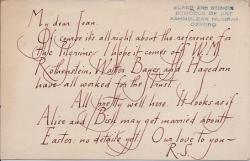 SLADE AND RUSKIN
SCHOOLS OF ART
ASHMOLEAN MUSEUM
OXFORD
My dear Joan.
Of course its all right about the reference for
the Pilgrim. I hope it comes off. W.M.
Rothenstein, Walter Bayes and Hagedorn
have all worked for the Trust.
All pretty well here. It looks as if
Alice and Dick may get married about
Easter: no details yet. Our love to you –
R.S.